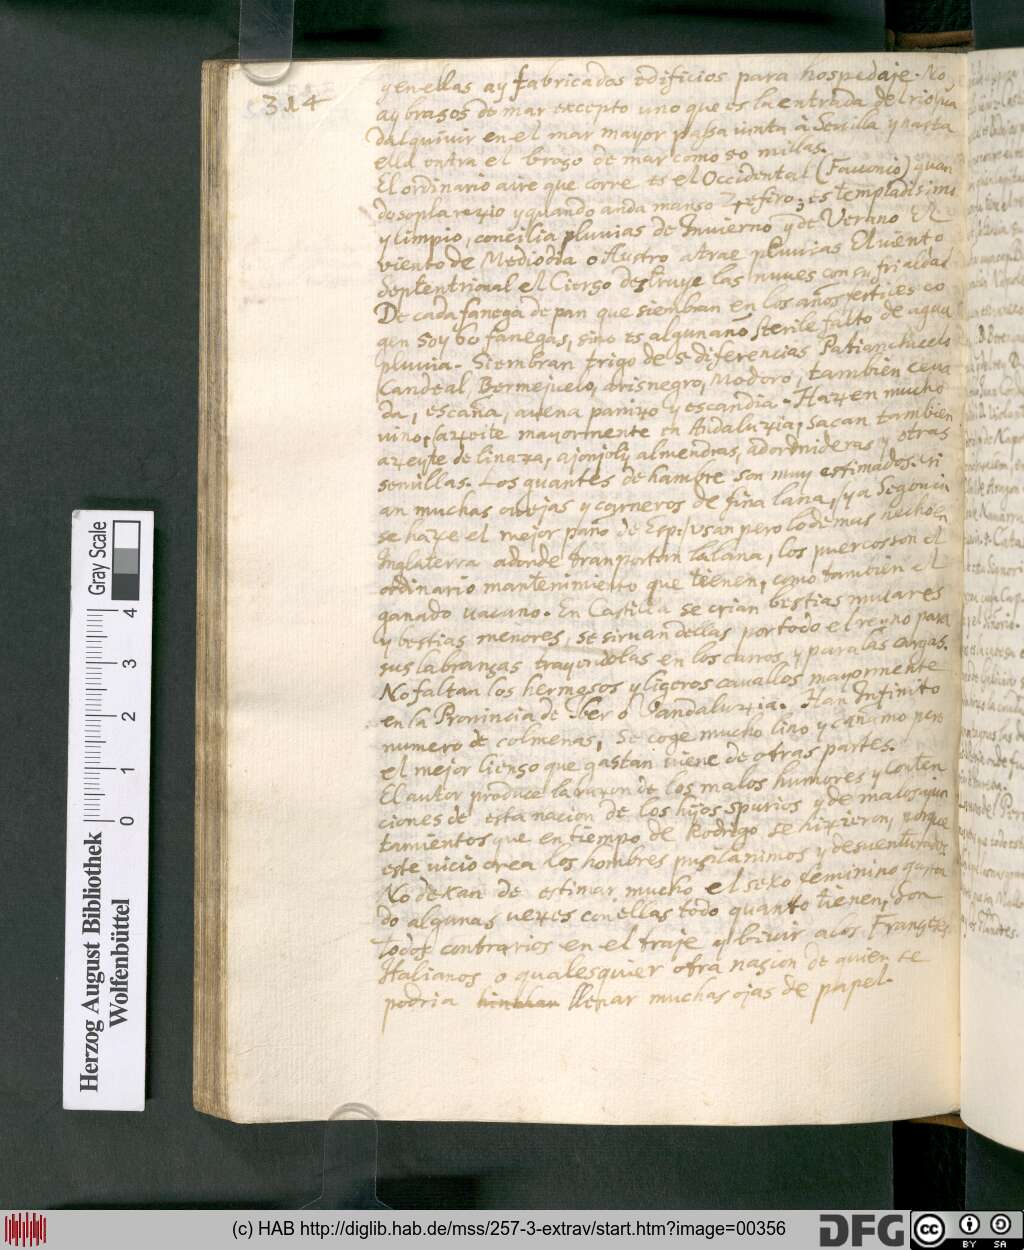 314
y en ellas ay fabricados edificios para hospedaje. No
ay brasos de mar excepto uno que es la entrada del rio Gua
dalquivir en el mar mayor passa iunta à Sevilla y hasta
ella entra el braso de mar como 50 millas.
El ordinario aire que corre es el Occidental (Fauonio) quan
do sopla rezio y quando anda manso Zefiro, es templadisimo
y limpio, concilia pluuias de Inuierno y de Verano El
viento de Mediodia o Austro atrae pluuias El viento
Septentrional el Cierso destruye las nuues con su frialdad
De cada fanega de pan que siembran en los años fertiles co
gen 50 y 60 fanegas, sino es algun año sterile falto de agua
pluuia. Siembran trigo de 5 diferencias
Candeal, Bermejuelo, arisnegro, Modoro, tambien ceua
da, escaña, auena panizo y escandia. Hazen mucho
vino, azeite mayormente en Andaluzia, sacan tambien
azeyte de linaza, ajonjoly almendras, adormideras y otras
semillas. Los guantes de hambre son muy estimados. Cri
an muchas ovejas y carneros de fina lana, y a Segouia
se haze el mejor paño de Esp. Vsan pero lo demas hecho en
Inglaterra adonde tranportan la lana, los puercos son el
ordinario mantenimiento que tienen, como tambien el
ganado vacuno. En Castilla se crian bestias mulares
y bestias menores, se siruan dellas por todo el reyno para
sus labranças trayendolas en los carros y para las cargas.
No faltan los hermosos y ligeros cauallos mayormente
en la Provincia de Iber o Vandaluzia. Han Infinito
numero de colmenas, Se coge mucho lino y cañamo pero
el mejor lienso que gastan viene de otras partes.
El autor produce la razon de los malos humores y conten
ciones de esta nacion de los hijos spurios y de malos ayun
tamientos que en tiempo de Rodrigo se hizieron, porque
este vicio crea los hombres pusilanimos y desuenturados
No dexan de estimar mucho el sexo feminino gastan
do algunas vezes con ellas todo quanto tienen, Son
todos contrarios en el traje y bivir a los Franzeses
Italianos o qualesquier otra nascion de quien se
podria llenar muchas ojas de papel.
Gray Scale
0 1 2 3 4
Herzog August Bibliothek
Wolfenbüttel
(c) HAB http://diglib.hab.de/mss/257-3-extrav/start.htm?image=00356
DFG
cc BY SA